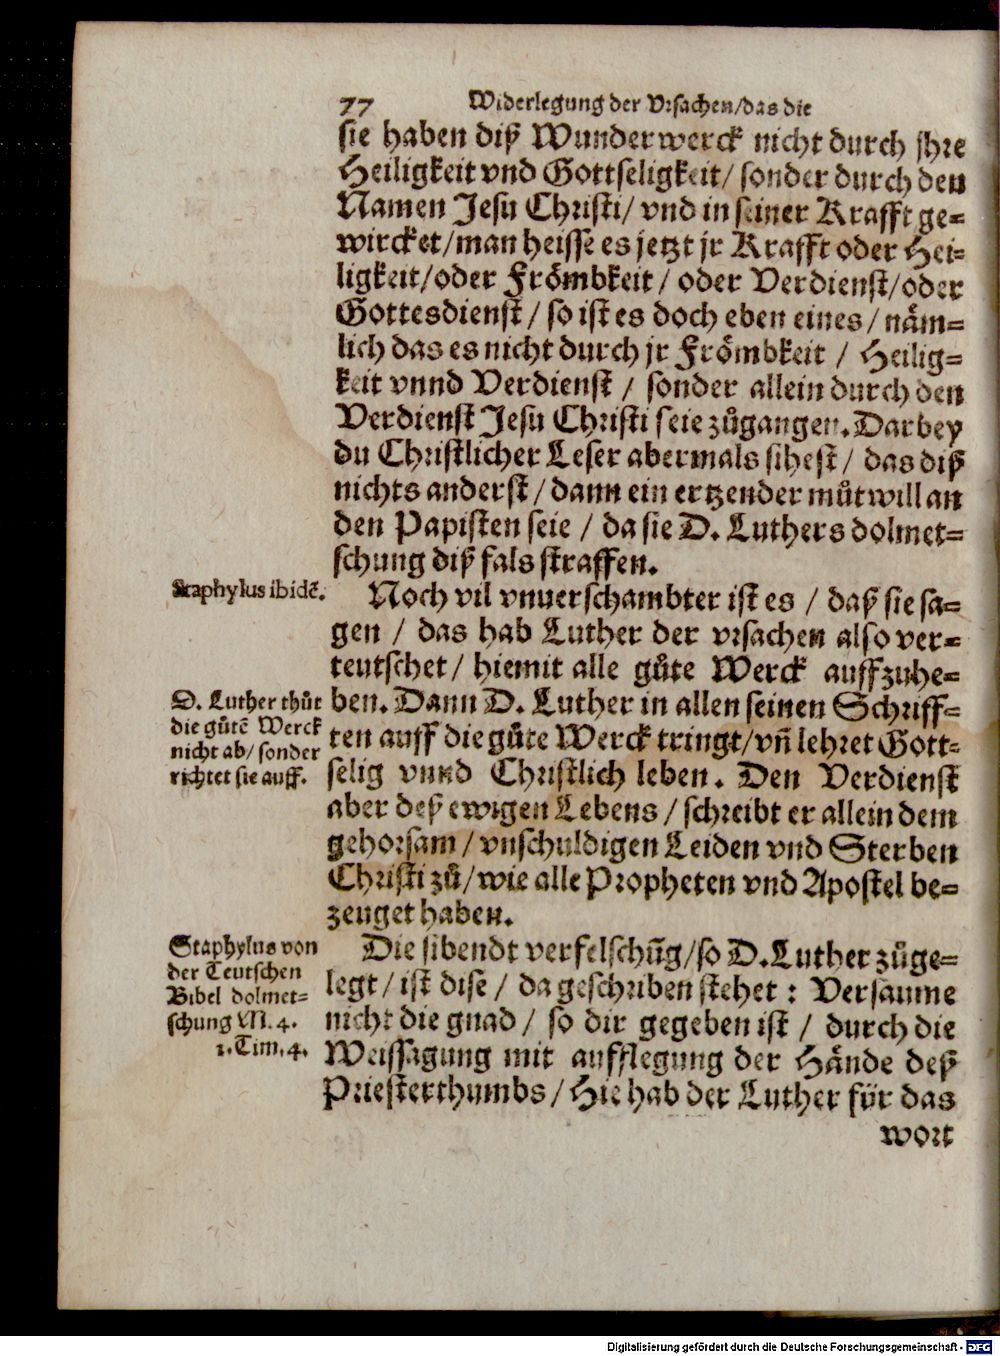 77 Widerlegung der Vrsachen/das die
sie haben diß Wunderwerck nicht durch jhre
Heiligkeit vnd Gottseligkeit/ sonder durch den
Namen Jesu Christi/ vnd in seiner Krafft ge-
wircket/man heisse es jetzt jr Krafft oder Hei-
ligkeit/oder Frömbkeit / oder Verdienst/oder
Gottesdienst / so ist es doch eben eines / näm-
lich das es nicht durch jr Frömbkeit / Heilig-
keit vnnd Verdienst / sonder allein durch den
Verdienst Jesu Christi seie zůgangen. Darbey
du Christlicher Leser abermals sihest / das diß
nichts anderst / dann ein ertzender můtwill an
den Papisten seie / da sie D. Luthers dolmet-
schung diß fals straffen.
Staphylus ibidē.
Noch vil vnuerschambter ist es / daß sie sa-
gen / das hab Luther der vrsachen also ver-
teutschet / hiemit alle gůte Werck auffzuhe-
D. Luther thůt
die gůtē Werck
nicht ab/ sonder
richtet sie auff.
ben. Dann D. Luther in allen seinen Schriff-
ten auff die gůte Werck tringt/vñ lehret Gott-
selig vnnd Christlich leben. Den Verdienst
aber deß ewigen Lebens / schreibt er allein dem
gehorsam / vnschuldigen Leiden vnd Sterben
Christi zů/wie alle Propheten vnd Apostel be-
zeuget haben.
Staphylus von
der Teutschen
Bibel dolmet-
schung M. 4.
1. Tim. 4.
Die sibendt verfelschūg/so D. Luther zůge-
legt / ist dise / da geschriben stehet : Versaume
nicht die gnad / so dir gegeben ist / durch die
Weissagung mit aufflegung der Hände deß
Priesterthumbs / Hie hab der Luther für das
wort
Digitalisierung gefördert durch die Deutsche Forschungsgemeinschaft - DFG